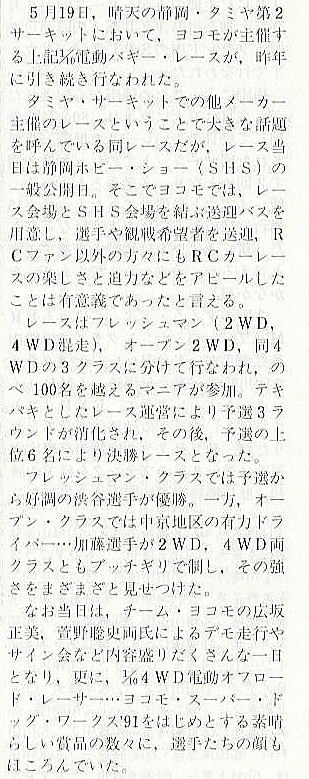 ５月19日，晴天の静岡・タミヤ第２
サーキットにおいて，ヨコモが主催す
る上記1/10電動バギー・レースが，昨年
に引き続き行なわれた。
タミヤ・サーキットでの他メーカー
主催のレースということで大きな話題
を呼んでいる同レースだが，レース当
日は静岡ホビー・ショー（ＳＨＳ）の
一般公開日。そこでヨコモでは，レー
ス会場とＳＨＳ会場を結ぶ送迎バスを
用意し，選手や観戦希望者を送迎，Ｒ
Ｃファン以外の方々にもＲＣカーレー
スの楽しさと迫力などをアピールした
ことは有意義であったと言える。
レースはフレッシュマン（２ＷＤ，
４ＷＤ混走），オープン２ＷＤ，同４
ＷＤの３クラスに分けて行なわれ，の
べ 100名を越えるマニアが参加。テキ
パキとしたレース運営により予選３ラ
ウンドが消化され，その後，予選の上
位６名により決勝レースとなった。
フレッシュマン・クラスでは予選か
ら好調の渋谷選手が優勝。一方，オー
プン・クラスでは中京地区の有力ドラ
イバー…加藤選手が２ＷＤ，４ＷＤ両
クラスともブッチギリで制し，その強
さをまざまざと見せつけた。
なお当日は，チーム・ヨコモの広坂
正美，萱野聡史両氏によるデモ走行や
サイン会など内容盛りだくさんな一日
となり，更に，1/10４ＷＤ電動オフロー
ド・レーサー…ヨコモ・スーパー・ド
ッグ・ワークス'91をはじめとする素晴
らしい賞品の数々に，選手たちの顔も
ほころんでいた。